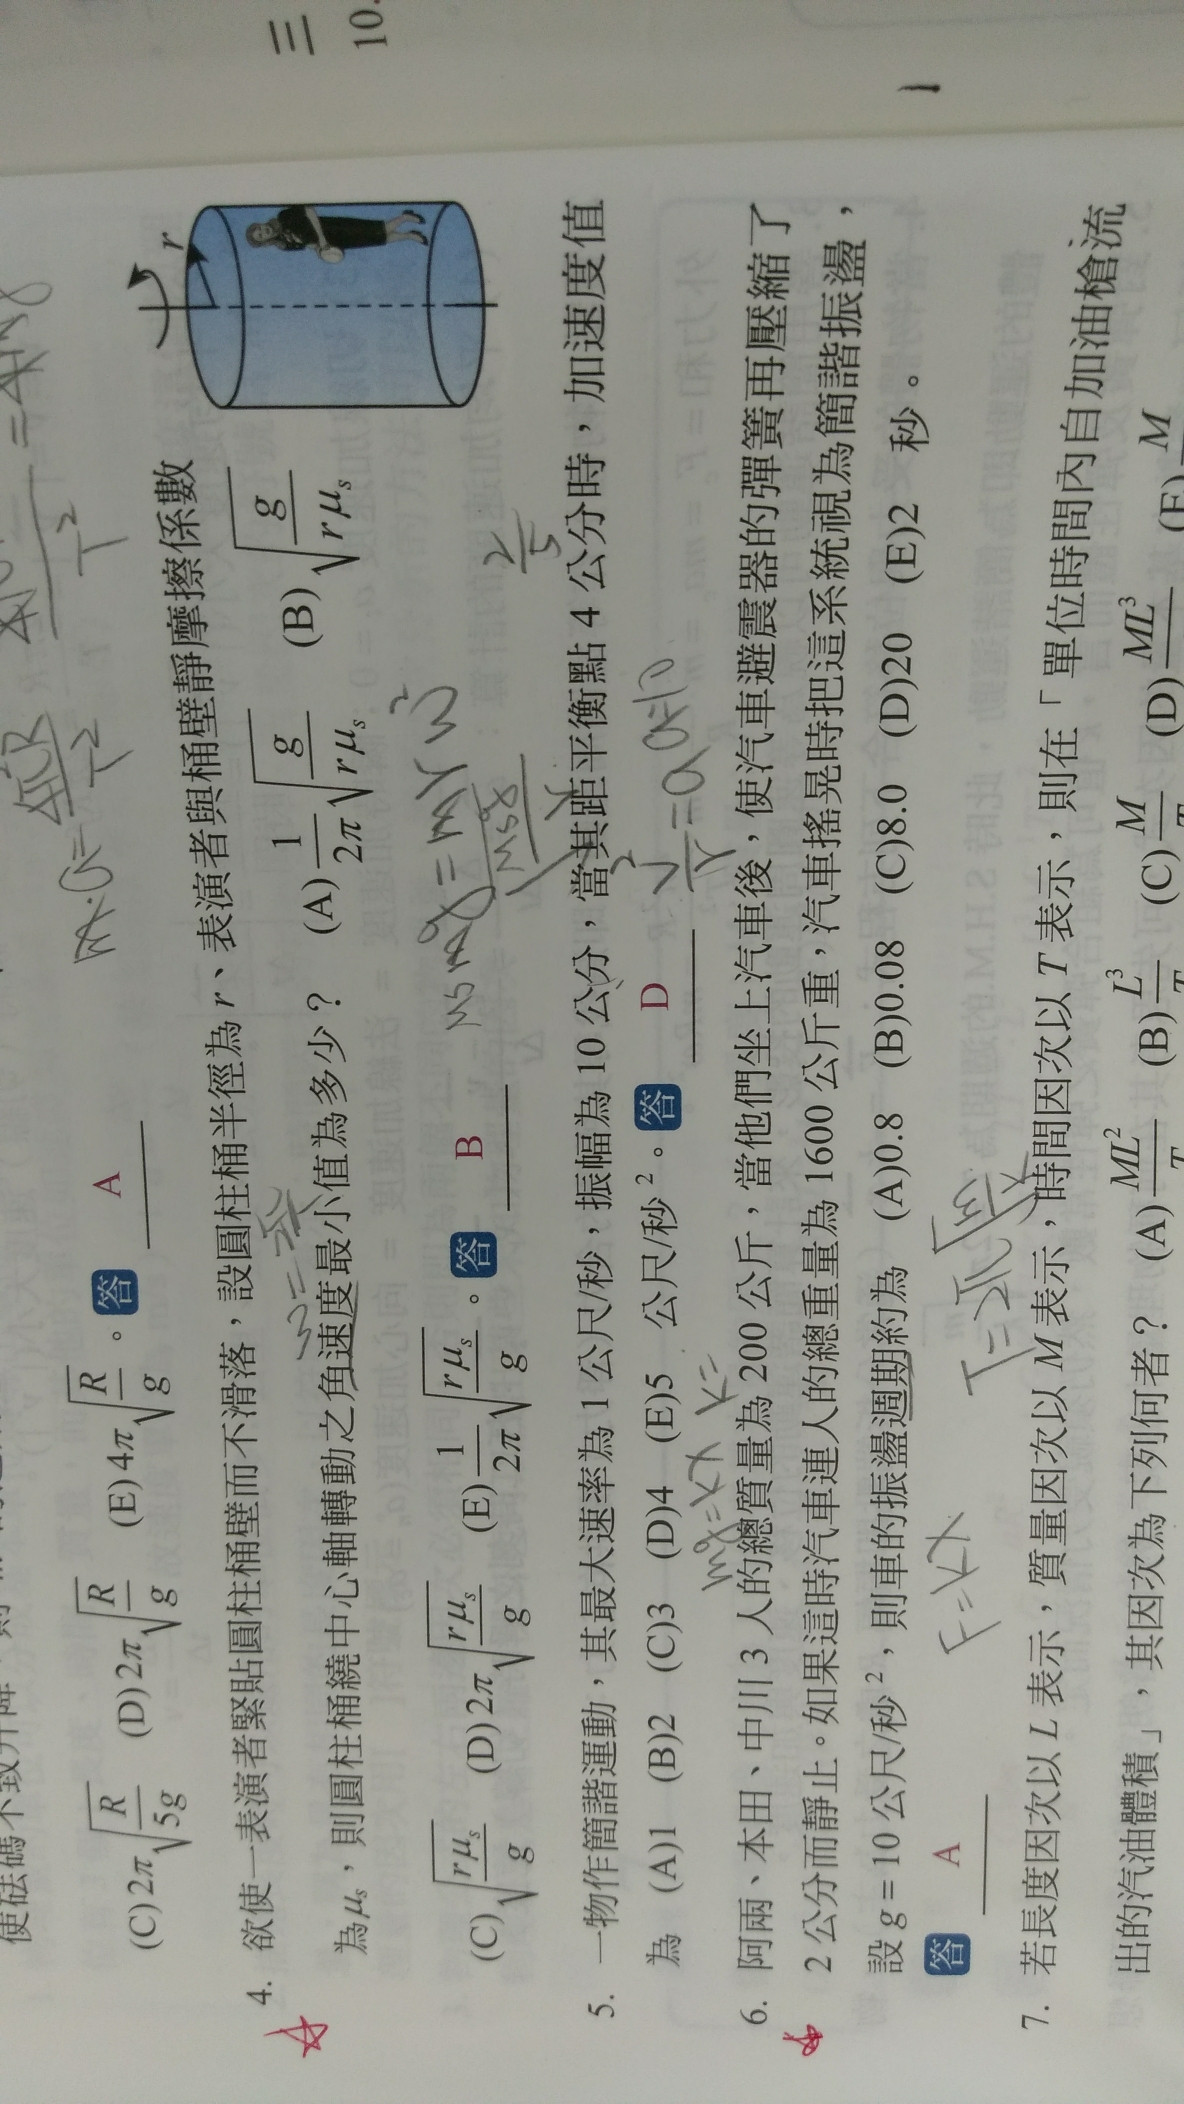 三
10.
(C) 2π√(R/5g) (D) 2π√(R/g) (E) 4π√(R/g) 。 答 A
4. 欲使一表演者緊貼圓柱桶壁而不滑落，設圓柱桶半徑為 r、表演者與桶壁靜摩擦係數
為 μs，則圓柱桶繞中心軸轉動之角速度最小值為多少？ (A) 1/2π √(g/rμs) (B) √(g/rμs)
(C) √(rμs/g) (D) 2π√(rμs/g) (E) 1/2π √(rμs/g) 。 答 B
r
μs mg = mrω²
5. 一物作簡諧運動，其最大速率為 1 公尺/秒，振幅為 10 公分，當其距平衡點 4 公分時，加速度值
為 (A)1 (B)2 (C)3 (D)4 (E)5 公尺/秒²。 答 D
v²/r = a a=10
mg=kx k=
6. 阿兩、本田、中川 3 人的總質量為 200 公斤，當他們坐上汽車後，使汽車避震器的彈簧再壓縮了
2 公分而靜止。如果這時汽車連人的總重量為 1600 公斤重，汽車搖晃時把這系統視為簡諧振盪，
設 g = 10 公尺/秒²，則車的振盪週期約為 (A)0.8 (B)0.08 (C)8.0 (D)20 (E)2 秒。
答 A
F=kx
T=2π√(m/k)
7. 若長度因次以 L 表示，質量因次以 M 表示，時間因次以 T 表示，則在「單位時間內自加油槍流
出的汽油體積」，其因次為下列何者？ (A) ML²/T (B) L³/T (C) M/T (D) ML³ (E) M